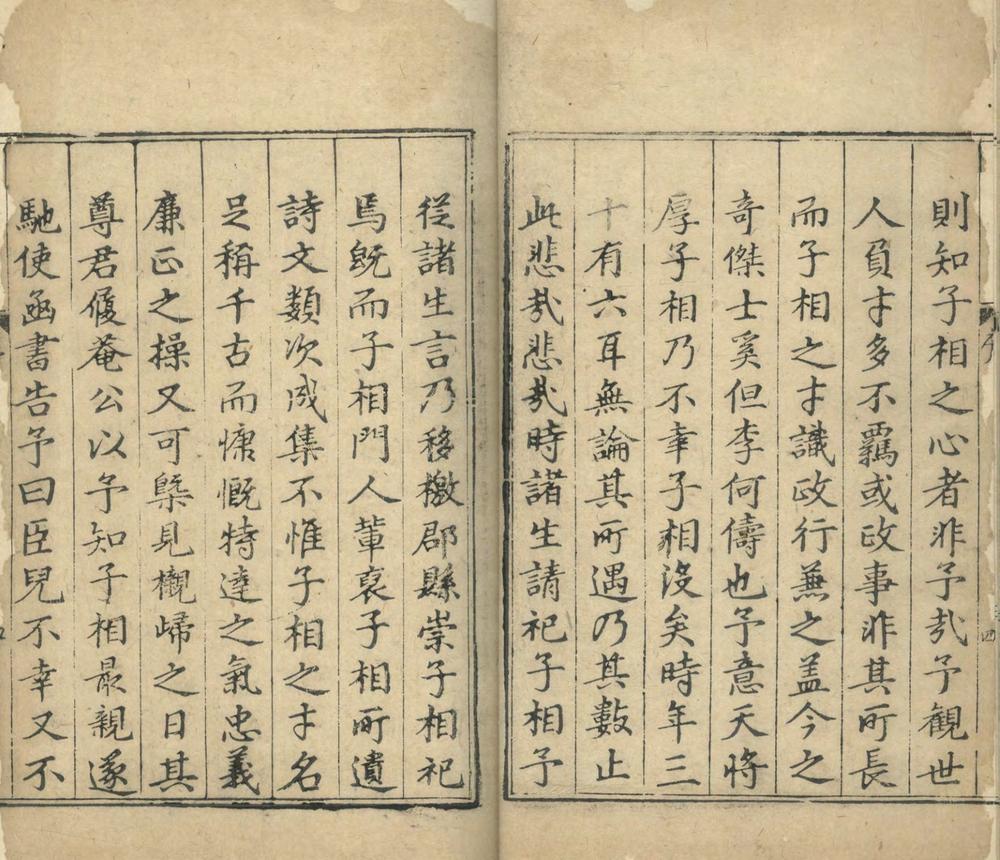 則知子相之心者非予㢤予観世
人負才多不羈或政事非其所長
而子相之才識政行兼之盖今之
奇傑士奚但李何儔也予意天将
厚子相乃不幸子相沒矣時年三
十有六耳無論其所遇乃其數止
此悲㢤悲㢤時諸生請祀子相予
四
從諸生言乃移檄郡縣崇子相祀
焉旣而子相門人軰裒子相所遺
詩文類次成集不惟子相之才名
足稱千古而慷慨特達之氣忠義
廉正之操又可槩見櫬歸之日其
尊君履菴公以予知子相最親遂
馳使函書告予曰臣兒不幸又不